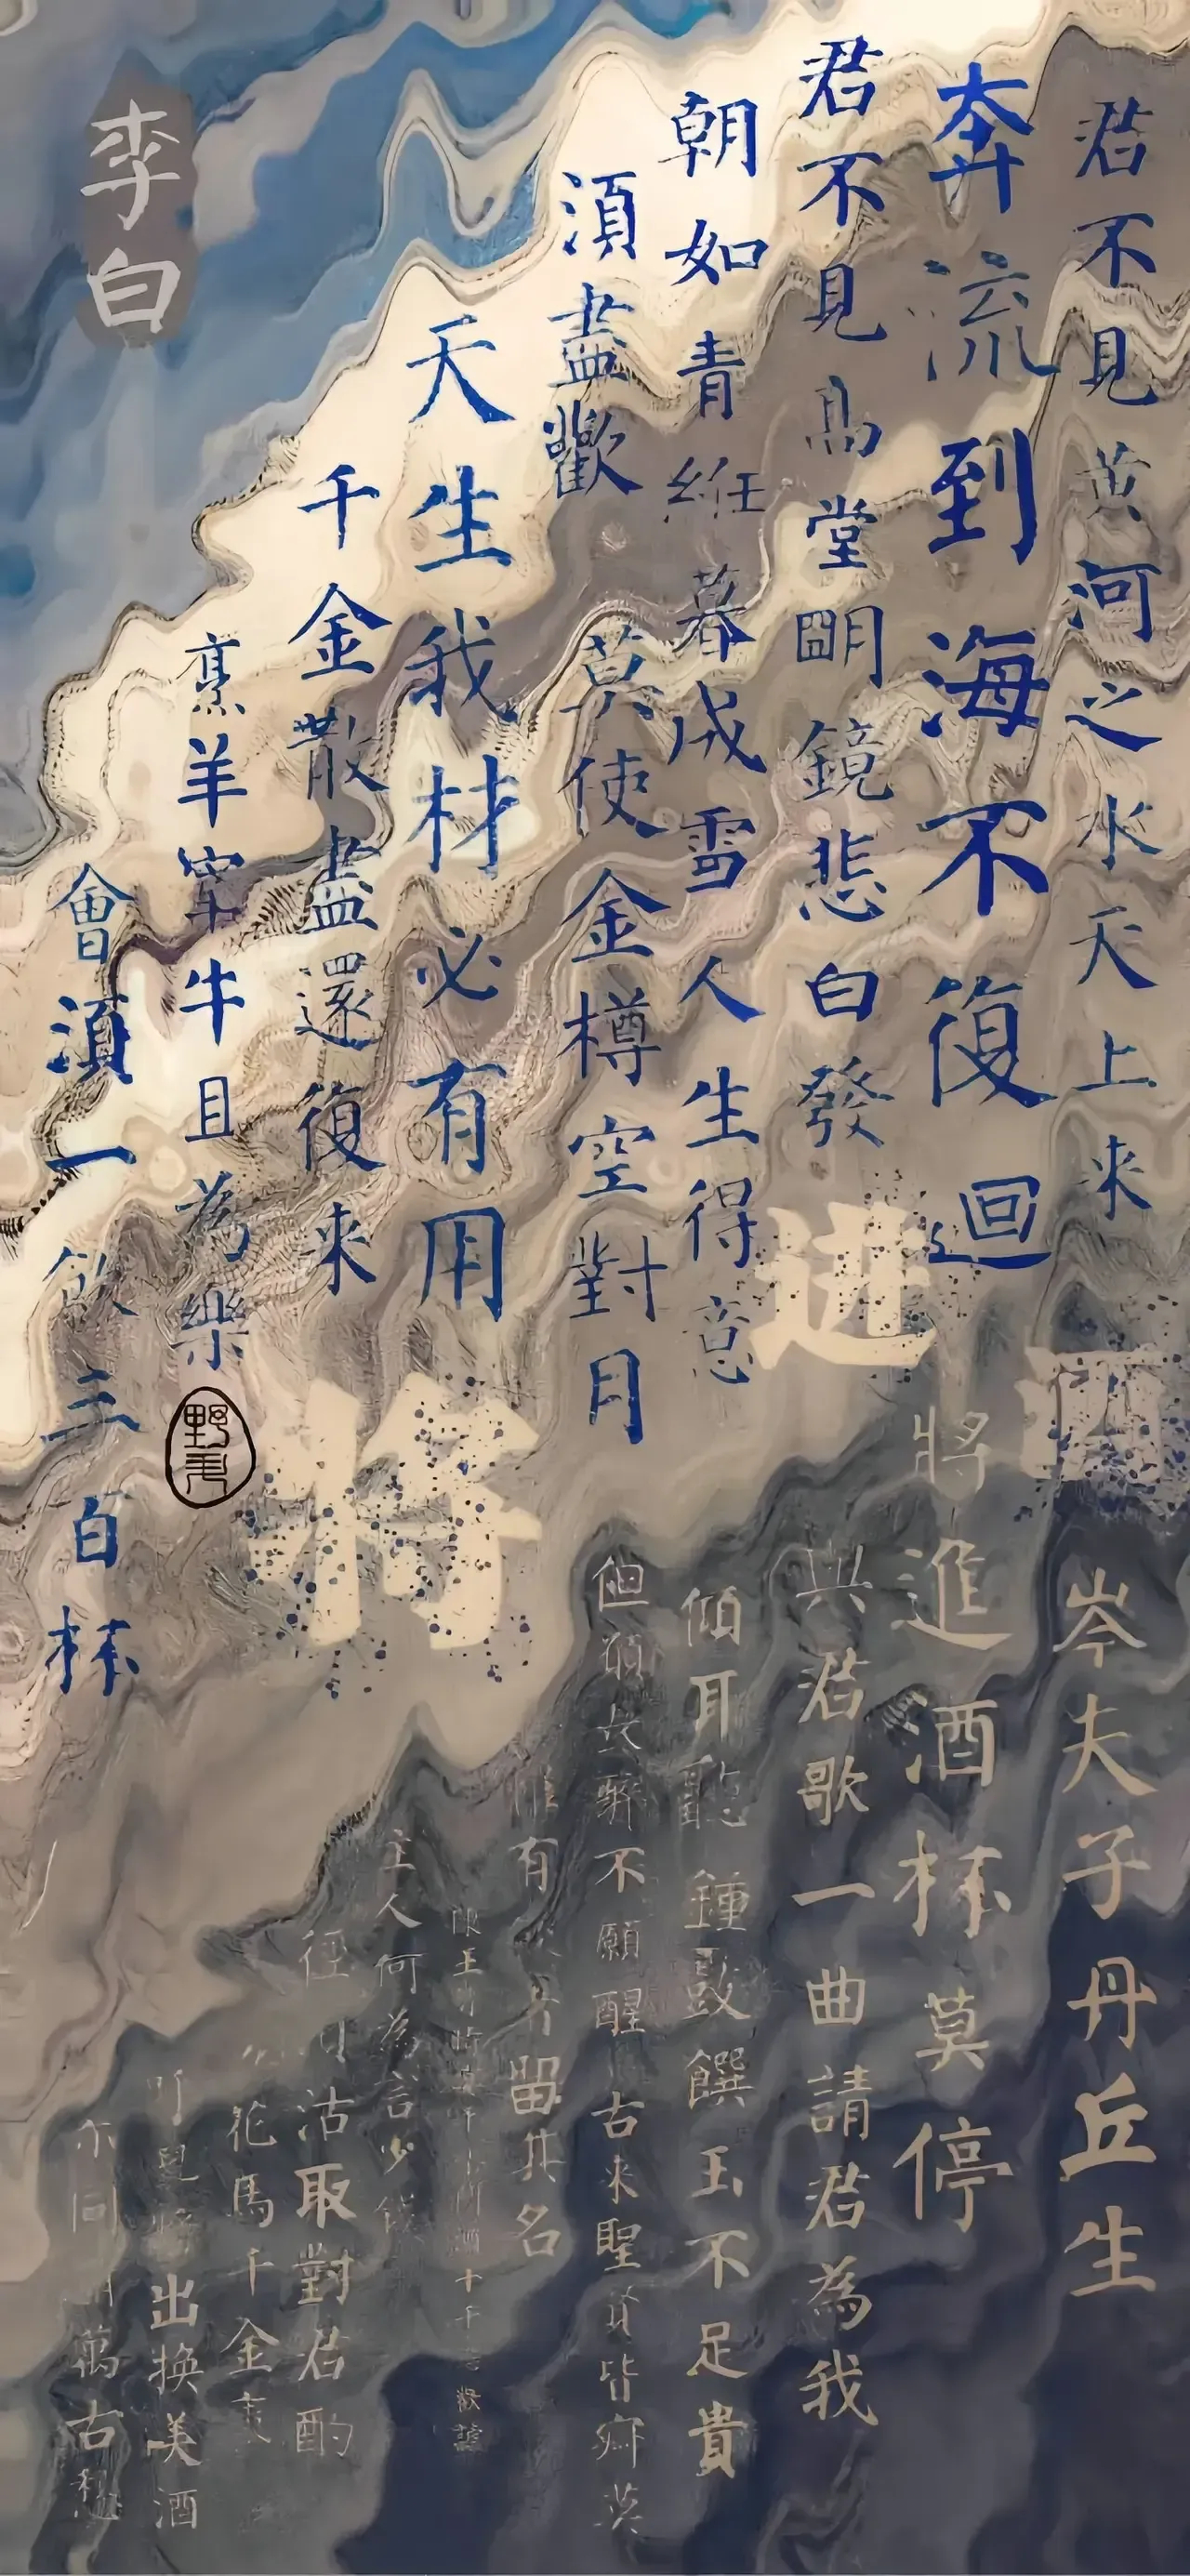 君不見黄河之水天上来
奔流到海不復迴
君不見高堂明鏡悲白發
朝如青丝暮成雪人生得意
須盡歡莫使金樽空對月
天生我材必有用
千金散盡還復来
烹羊宰牛且為樂
會須一飲三百杯
岑夫子丹丘生
將進酒杯莫停
與君歌一曲請君為我
傾耳聽鍾鼓饌玉不足貴
但願長醉不願醒古来聖賢皆寂莫
惟有飲者留其名
陳王昔時宴平樂酒十千恣歡謔
主人何為言少錢
徑沽取對君酌
花馬千金裘
呼兒將出換美酒
尓同萬古愁
将进酒
李白